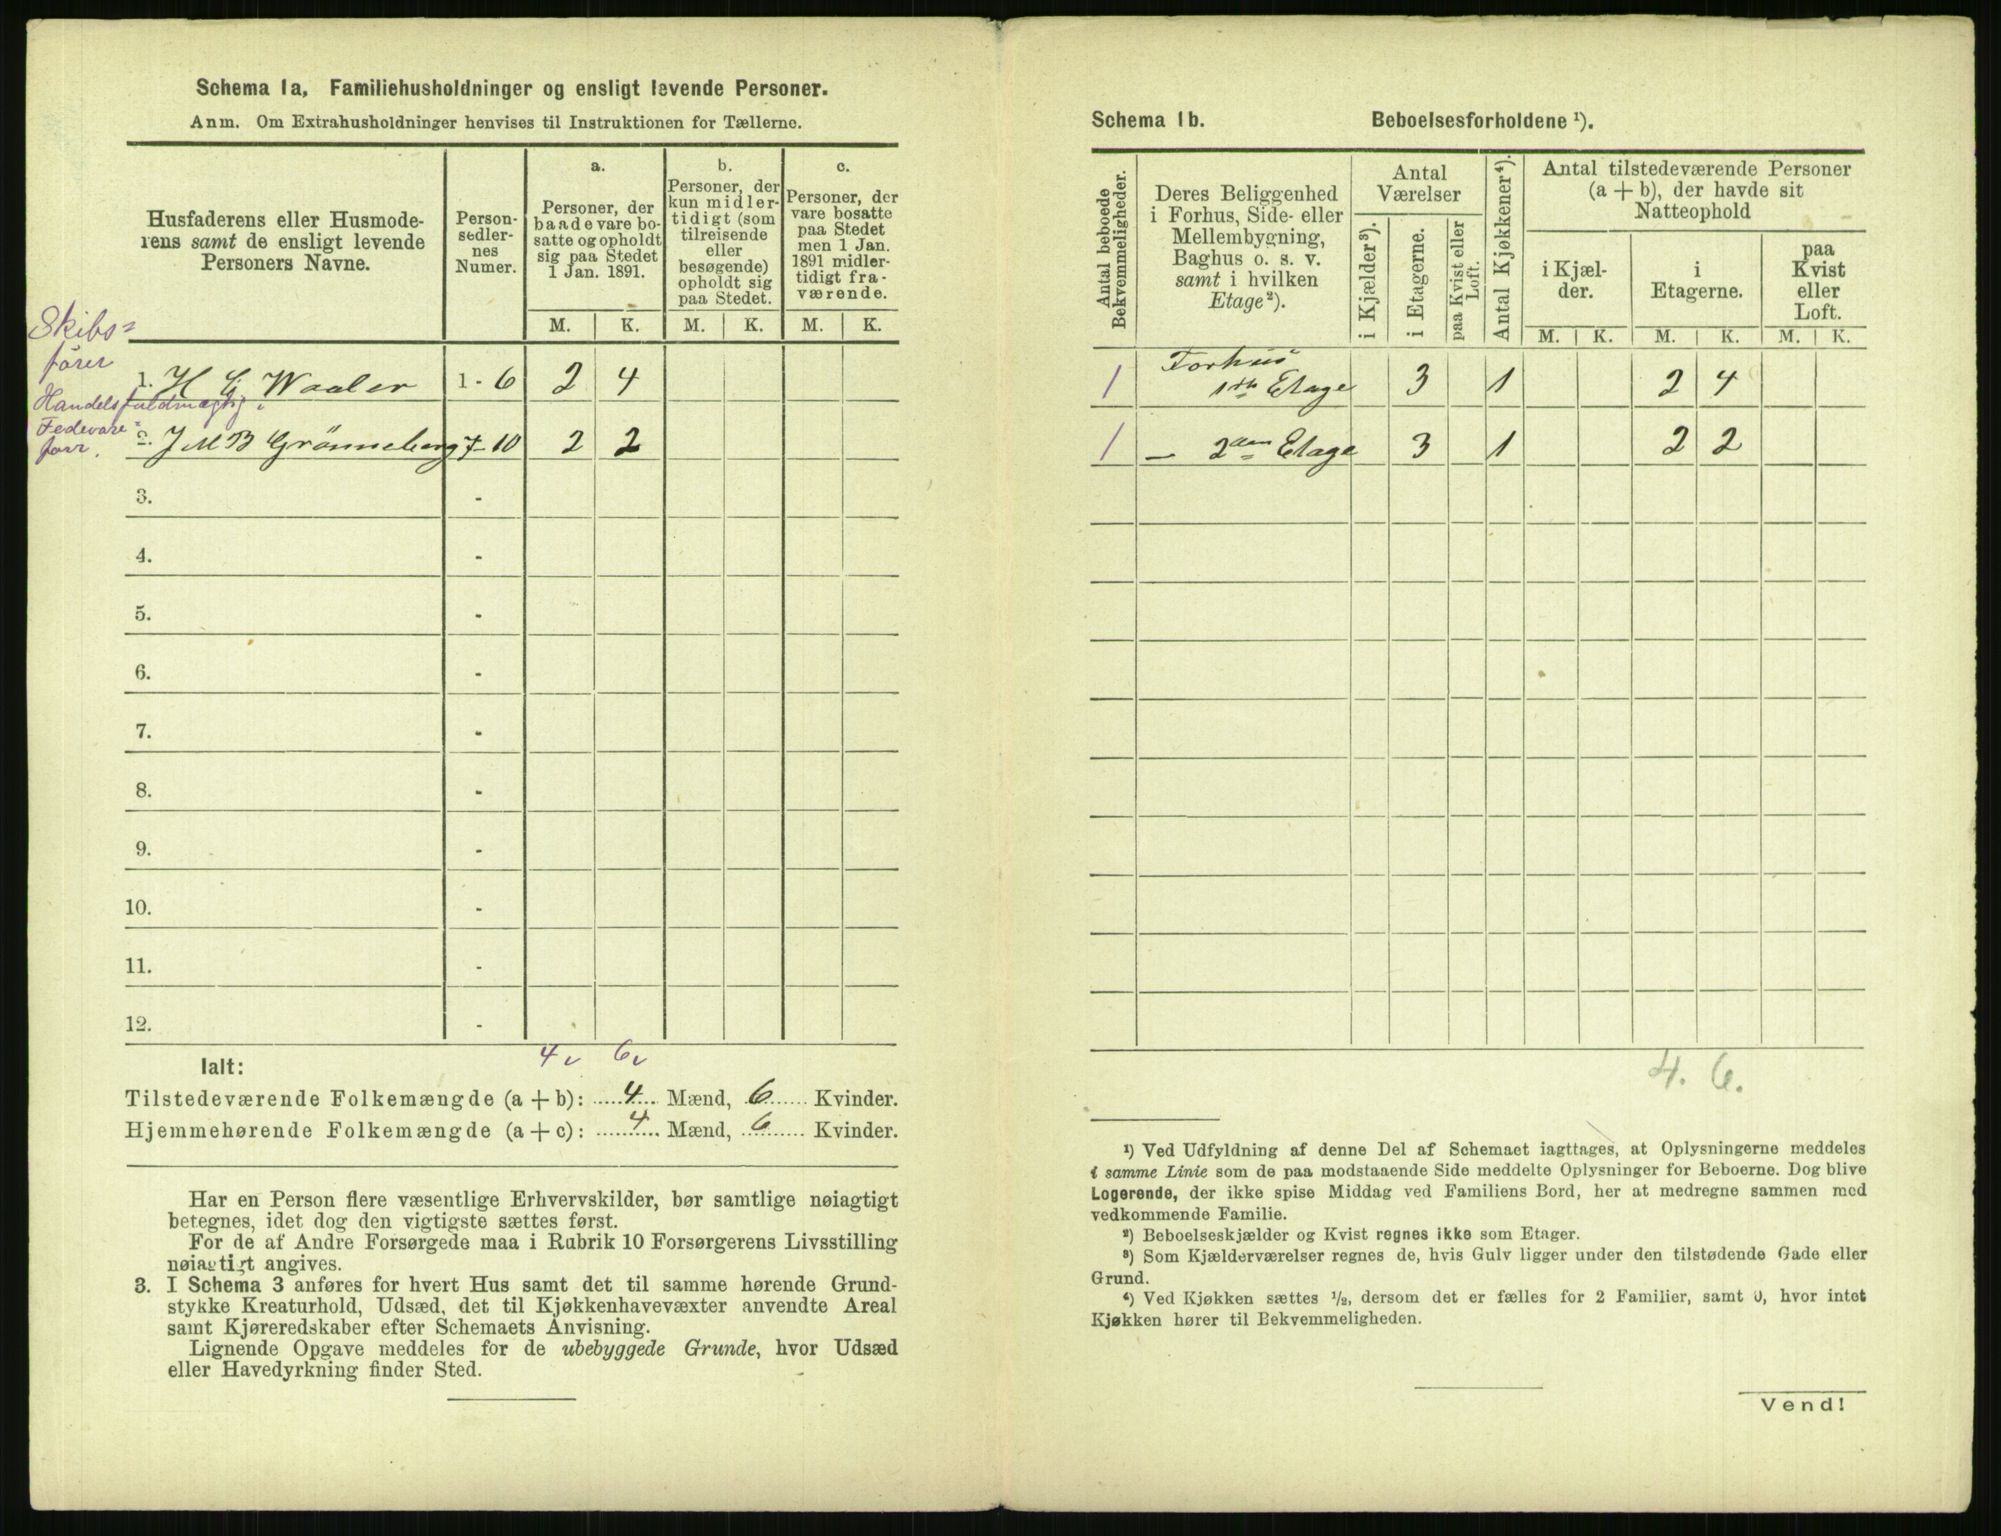 Schema 1a, Familiehusholdninger og ensligt levende Personer.
Anm. Om Extrahusholdninger henvises til Instruktionen for Tællerne.
Husfaderens eller Husmode-
rens samt de ensligt levende
Personers Navne.
Person-
sedler-
nes
Numer.
a.
Personer, der
baade vare bo-
satte og opholdt
sig paa Stedet
1 Jan. 1891.
b.
Personer, der
kun midler-
tidigt (som
tilreisende
eller
besøgende)
opholdt sig
paa Stedet.
c.
Personer, der
vare bosatte
paa Stedet
men 1 Jan.
1891 midler-
tidigt fra-
værende.
M. K. M. K. M. K.
Skibs=
fører
1. H G Waaler 1 - 6 2 4
Handelsfuldmægtig i
Fedevare=
forr.
2. J M B Grønneberg 7-10 2 2
3. -
4. -
5. -
6. -
7. -
8. -
9. -
10. -
11. -
12. -
Ialt: 4 v 6 v
Tilstedeværende Folkemængde (a + b): 4 Mænd, 6 Kvinder.
Hjemmehørende Folkemængde (a + c): 4 Mænd, 6 Kvinder.
Har en Person flere væsentlige Erhvervskilder, bør samtlige nøiagtigt
betegnes, idet dog den vigtigste sættes først.
For de af Andre Forsørgede maa i Rubrik 10 Forsørgerens Livsstilling
nøiagtigt angives.
3. I Schema 3 anføres for hvert Hus samt det til samme hørende Grund-
stykke Kreaturhold, Udsæd, det til Kjøkkenhavevæxter anvendte Areal
samt Kjøreredskaber efter Schemaets Anvisning.
Lignende Opgave meddeles for de ubebyggede Grunde, hvor Udsæd
eller Havedyrkning finder Sted.
Schema 1b. Beboelsesforholdene ¹).
Antal beboede
Bekvemmeligheder.
Deres Beliggenhed
i Forhus, Side- eller
Mellembygning,
Baghus o. s. v.
samt i hvilken
Etage²).
Antal
Værelser
i Kjælder³).
i Etagerne.
paa Kvist eller
Loft.
Antal Kjøkkener⁴).
Antal tilstedeværende Personer
(a + b), der havde sit
Natteophold
i Kjæl-
der.
i
Etagerne.
paa
Kvist
eller
Loft.
M. K. M. K. M. K.
1 Forhus
1ste Etage 3 1 2 4
1 — 2den Etage 3 1 2 2
4. 6.
¹) Ved Udfyldning af denne Del af Schemaet iagttages, at Oplysningerne meddeles
i samme Linie som de paa modstaaende Side meddelte Oplysninger for Beboerne. Dog blive
Logerende, der ikke spise Middag ved Familiens Bord, her at medregne sammen med
vedkommende Familie.
²) Beboelseskjælder og Kvist regnes ikke som Etager.
³) Som Kjælderværelser regnes de, hvis Gulv ligger under den tilstødende Gade eller
Grund.
⁴) Ved Kjøkken sættes ½, dersom det er fælles for 2 Familier, samt 0, hvor intet
Kjøkken hører til Bekvemmeligheden.
Vend!